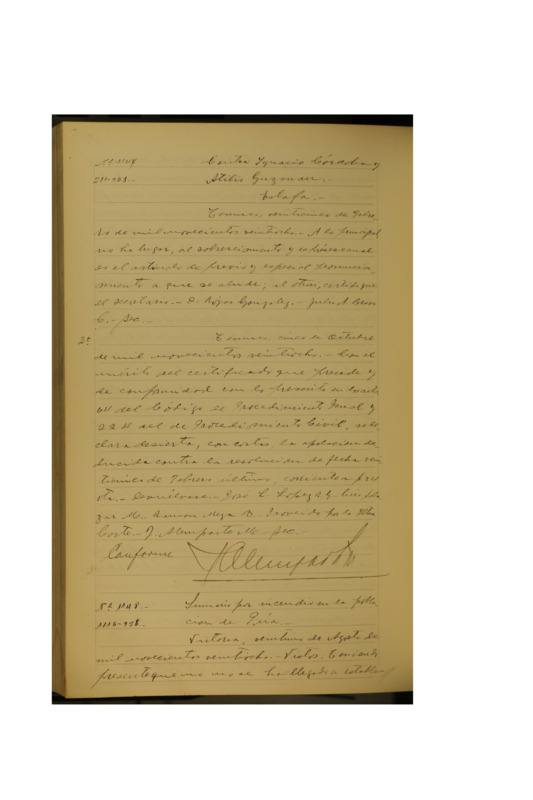 Nº 1147 Contra Ignacio Córdoba y
Atilio Guzman.-
Estafa.-
Temuco, veinticinco de Febre-
ro de mil novecientos veintiocho.- A lo principal
no ha lugar, al sobreseimiento y
es el artículo de previo y especial pronuncia-
miento a que se alude; al otrosi, certifique
el secretario.- D. Rojas Gonzalez.- Julio A.
C.- Sec.-
2ª Temuco, cinco de Octubre
de mil novecientos veintiocho.- Con el
mérito del certificado que precede y
de conformidad con lo prescrito en los arts.
64 del Código de Procedimiento Penal y
224 del de Procedimiento Civil, se de-
clara desierta, con costas, la apelacion de-
ducida contra la resolucion de fecha vein-
ticinco de Febrero último, corriente a
José L. Lopez
M.- Ramon Meza B.- Proveido por la Iltma
Corte.- J. Memparte M.- Sec.-
Conforme
Nº 1148.- Sumario por incendio en la pobla-
cion de Púa.-
Victoria, veintiuno de Agosto de
mil novecientos veintiocho.- Vistos: Teniendo
presente que no se ha llegado a establecer